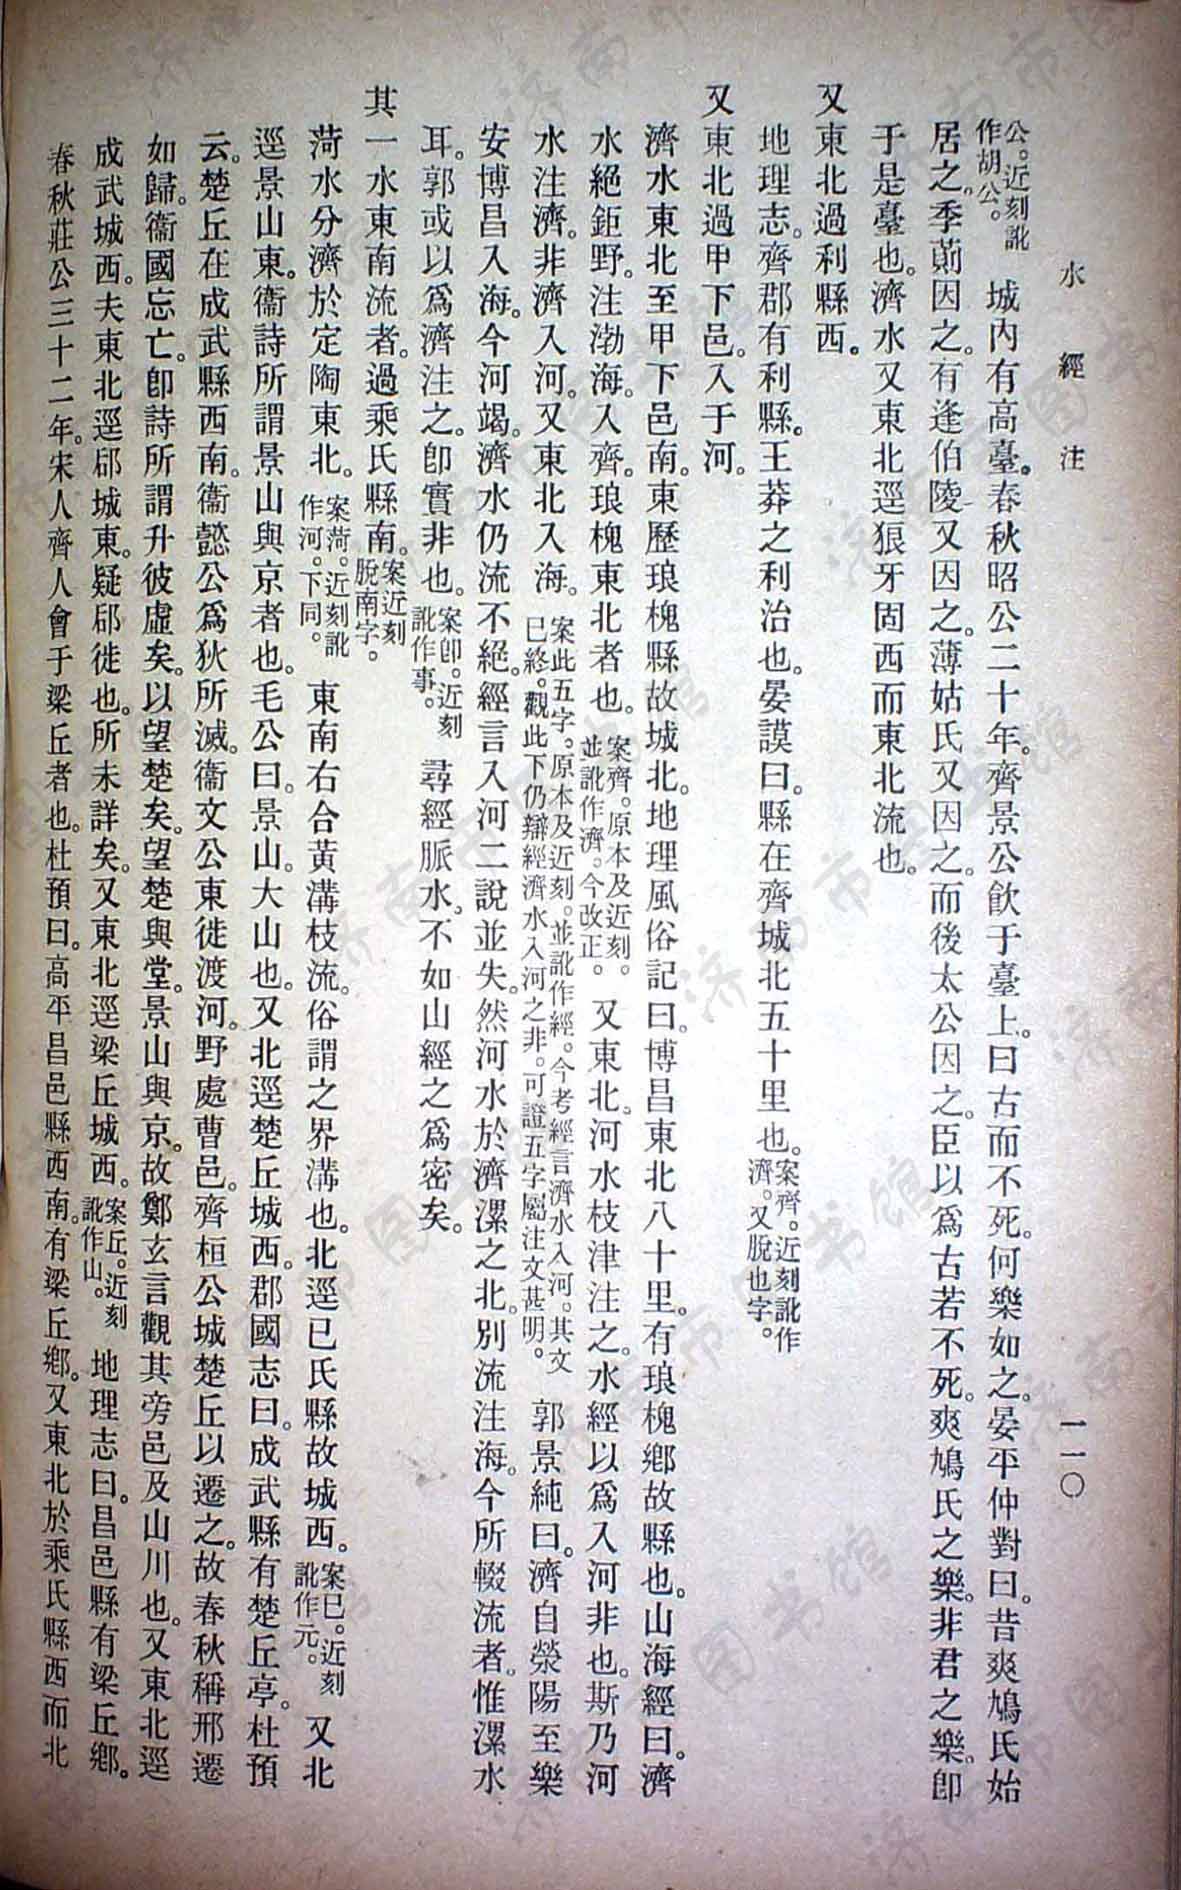 水經注
一一〇
公。近刻訛作胡公。城內有高臺。春秋昭公二十年。齊景公飲于臺上。曰古而不死。何樂如之。晏平仲對曰。昔爽鳩氏始
居之。季萴因之。有逢伯陵又因之。薄姑氏又因之。而後太公因之。臣以爲古若不死。爽鳩氏之樂。非君之樂。卽
于是臺也。濟水又東北逕狼牙固西而東北流也。
又東北過利縣西。
地理志。齊郡有利縣。王莽之利治也。晏謨曰。縣在齊城北五十里也。案齊。近刻訛作濟。又脫也字。
又東北過甲下邑。入于河。
濟水東北至甲下邑南。東歷琅槐縣故城北。地理風俗記曰。博昌東北八十里。有琅槐鄉故縣也。山海經曰。濟
水絕鉅野。注渤海。入齊。琅槐東北者也。案齊。原本及近刻。並訛作濟。今改正。又東北。河水枝津注之。水經以爲入河非也。斯乃河
水注濟。非濟入河。又東北入海。案此五字。原本及近刻。並訛作經。今考經言濟水入河。其文已終。觀此下仍辯經濟水入河之非。可證五字屬注文甚明。郭景純曰。濟自滎陽至樂
安博昌入海。今河竭。濟水仍流不絕。經言入河二說並失。然河水於濟漯之北。別流注海。今所輟流者。惟漯水
耳。郭或以爲濟注之。卽實非也。案卽。近刻訛作事。尋經脈水。不如山經之爲密矣。
其一水東南流者。過乘氏縣南。案近刻脫南字。
菏水分濟於定陶東北。案菏。近刻訛作河。下同。東南右合黃溝枝流。俗謂之界溝也。北逕已氏縣故城西。案已。近刻訛作元。又北
逕景山東。衞詩所謂景山與京者也。毛公曰。景山。大山也。又北逕楚丘城西。郡國志曰。成武縣有楚丘亭。杜預
云。楚丘在成武縣西南。衞懿公爲狄所滅。衞文公東徙渡河。野處曹邑。齊桓公城楚丘以遷之。故春秋稱邢遷
如歸。衞國忘亡。卽詩所謂升彼虛矣。以望楚矣。望楚與堂。景山與京。故鄭玄言觀其旁邑及山川也。又東北逕
成武城西。夫東北逕郈城東。疑郈徙也。所未詳矣。又東北逕梁丘城西。案丘。近刻訛作山。地理志曰。昌邑縣有梁丘鄉。
春秋莊公三十二年。宋人齊人會于梁丘者也。杜預曰。高平昌邑縣西南。有梁丘鄉。又東北於乘氏縣西而北